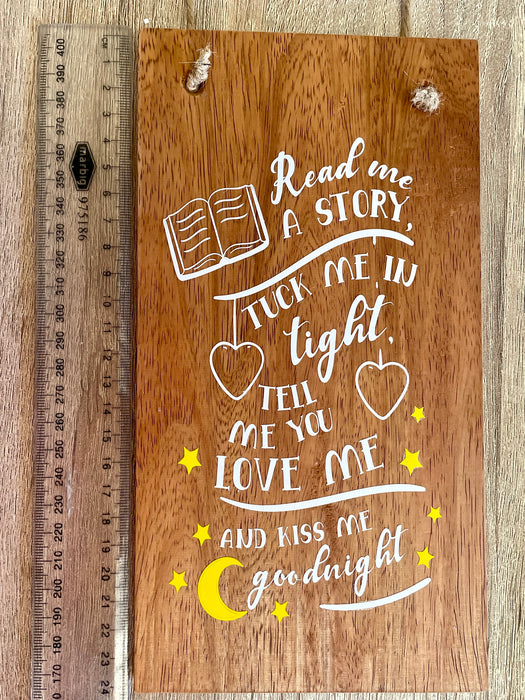 Read me
A STORY,
TUCK ME IN
tight,
TELL
ME YOU
LOVE ME
AND KISS ME
goodnight
CM
1
2
3
4
5
6
7
8
9
10
11
12
13
14
15
16
17
18
19
20
21
22
23
24
400
390
380
370
360
350
340
330
320
310
300
290
280
270
260
250
240
230
220
210
200
190
180
170
marbig
975186